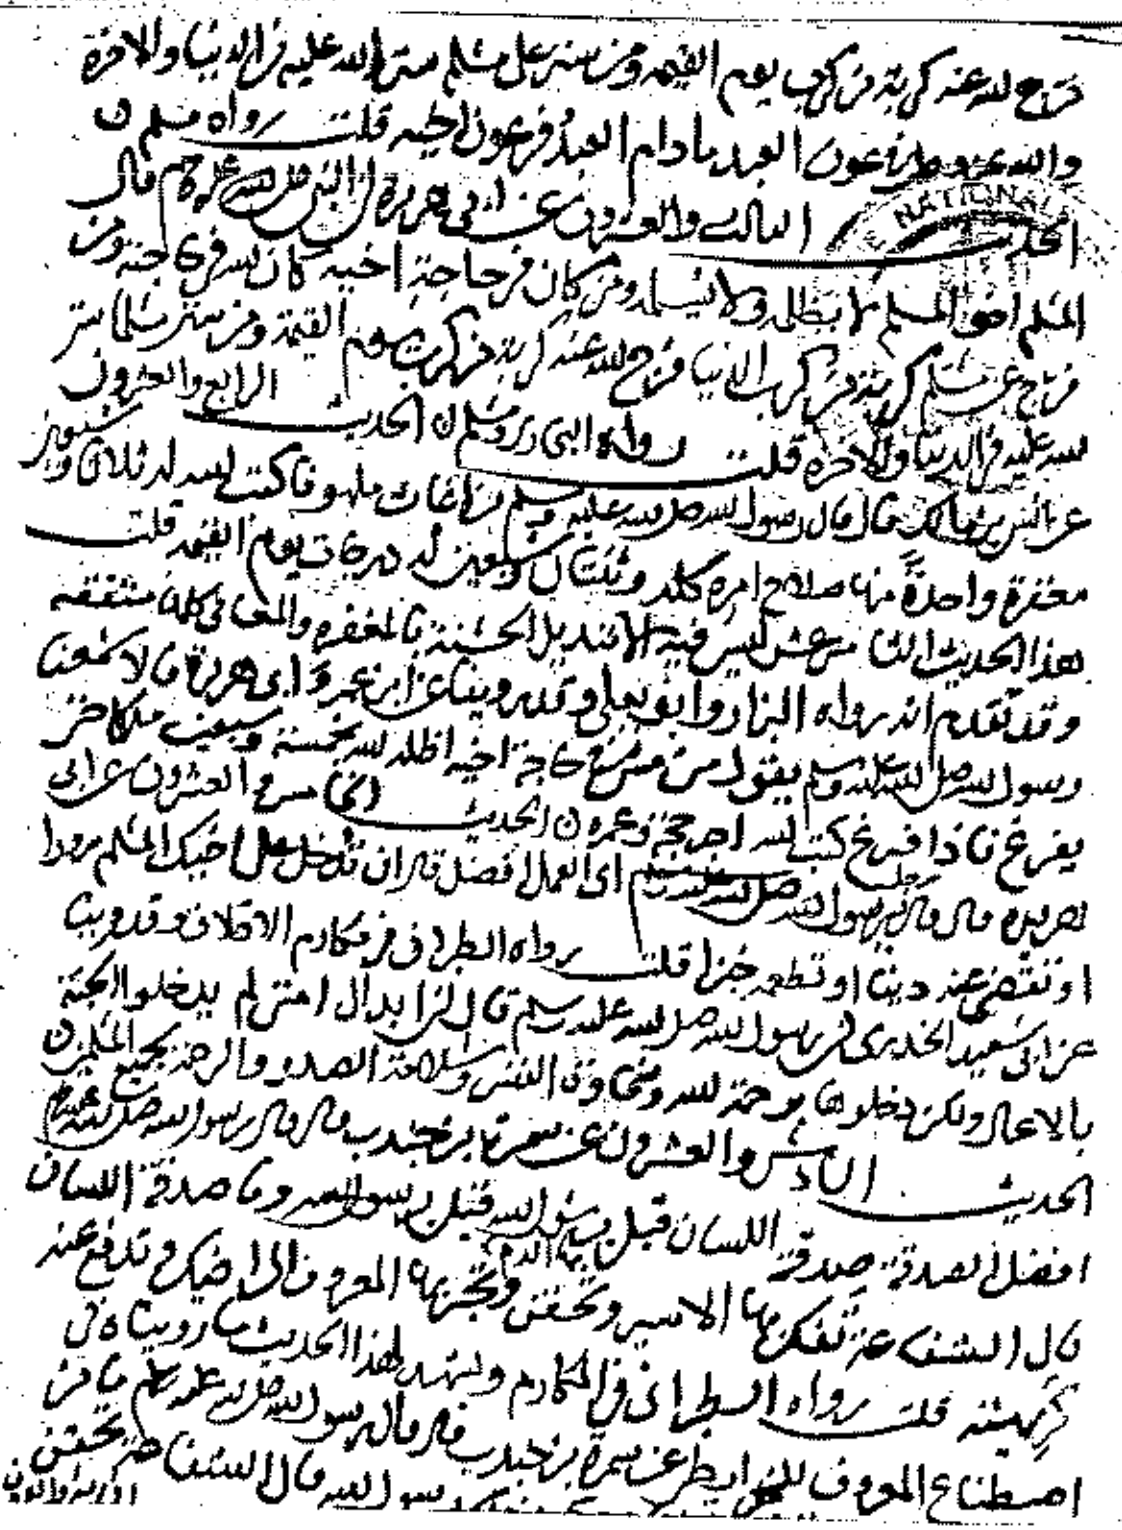 فرج الله عنه كربة من كرب يوم القيمة ومن ستر على مسلم ستر الله عليه في الدنيا والاخرة
والله عز وجل في عون العبد مادام العبد في عون اخيه قلت رواه مسلم
الحديث الثالث والعشرون عن ابي هريرة ان النبي صلى الله عليه وسلم قال
المسلم اخو المسلم لا يظلمه ولا يسلمه ومن كان في حاجة اخيه كان الله في حاجته ومن
فرج عن مسلم كربة من كرب الدنيا فرج الله عنه كربة من كرب يوم القيمة ومن ستر مسلما ستر
الله عليه في الدنيا والاخرة قلت رواه ومسلم الحديث الرابع والعشرون
عن انس بن مالك قال قال رسول الله صلى الله عليه وسلم من اغاث ملهوفا كتب الله له ثلاثا وسبعين
مغفرة واحدة منها صلاح امره كله وثنتان وسبعين له درجات يوم القيمة قلت
هذا الحديث ليس فيه الا تبديل الحسنة بالمغفرة والمعاني كلها متفقه
وقد تقدم انه رواه البزار وابو يعلى وقد روينا عن ابن عمر وابي هريرة قالا سمعنا
رسول الله صلى الله عليه وسلم يقول من مشى في حاجة اخيه اظله الله بخمسة وسبعين ملكا حتى
يفرغ فاذا فرغ كتب الله اجر حجة وعمرة الحديث الخامس والعشرون عن ابي
هريرة قال قال رسول الله صلى الله عليه وسلم اي العمل افضل قال ان تدخل على اخيك المسلم سرورا
او تقضي عنه دينا او تطعمه خبزا قلت رواه الطبراني في مكارم الاخلاق وقد روينا
عن ابي سعيد الخدري ان رسول الله صلى الله عليه وسلم قال ان ابدال امتي لم يدخلوا الجنة
بالاعمال ولكن دخلوها برحمة الله وسخاوة النفس وسلامة الصدر والرحمة بجميع المسلمين
الحديث السادس والعشرون عن سمرة بن جندب قال قال رسول الله صلى الله عليه وسلم
افضل الصدقة صدقة اللسان قيل يا رسول الله وما صدقة اللسان
قال الشفاعة تفك بها الاسير وتحقن بها الدم وتجر بها المعروف الى اخيك وتدفع عنه
كريهته قلت رواه الطبراني في المكارم ويشهد لهذا الحديث ما رويناه في
اصطناع المعروف عن سمرة بن جندب قال قال رسول الله صلى الله عليه وسلم ما من
رسول الله قال الشفاعة تحقن
NATIONAL